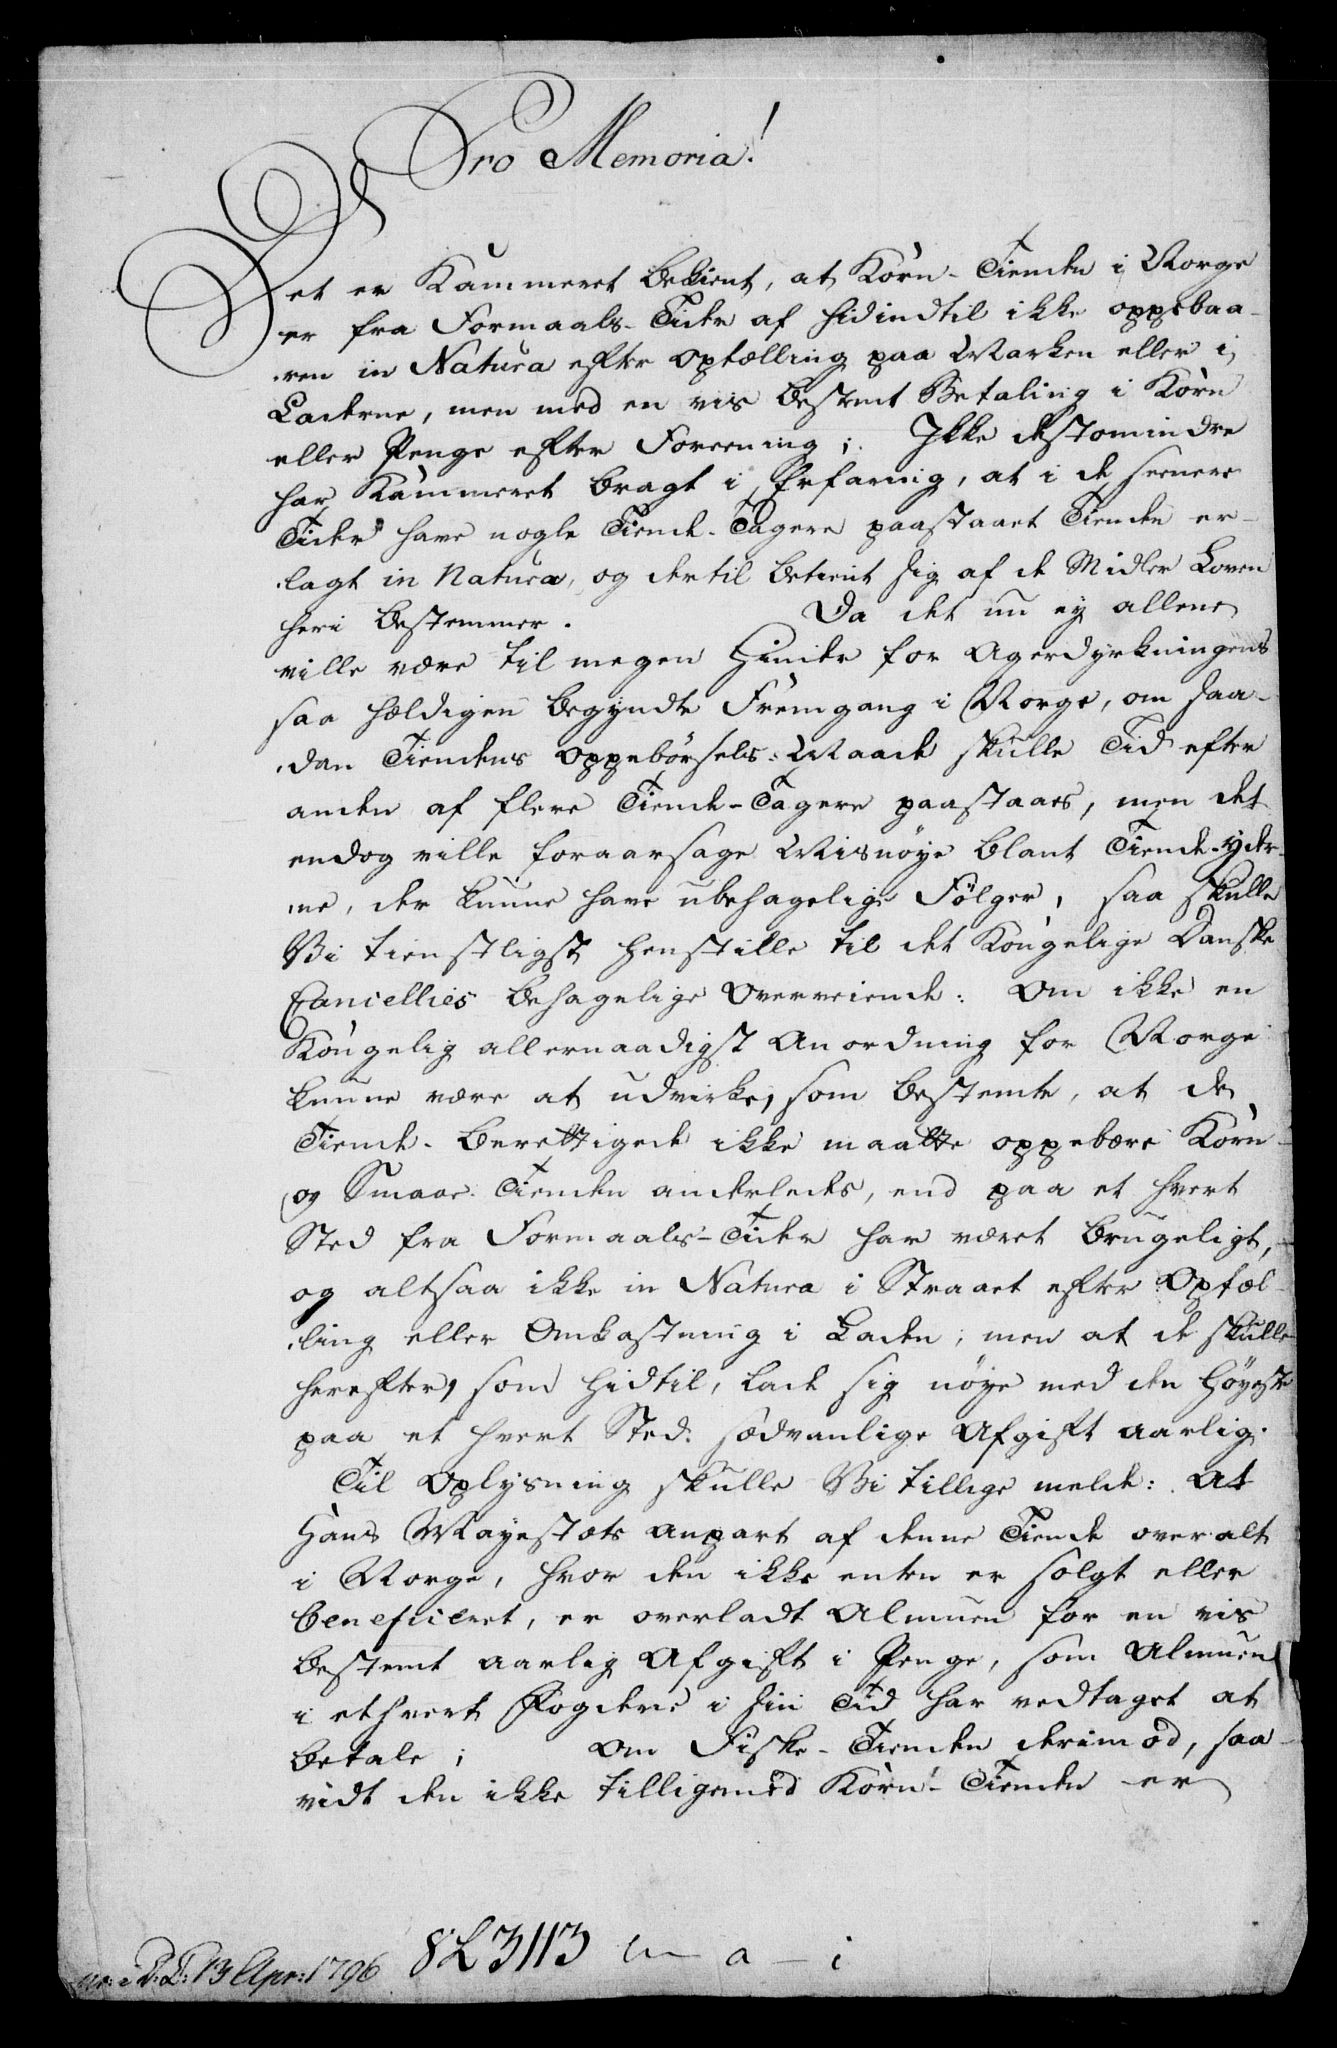 Pro Memoria!
Det er Kammeret bekient, at Korn-Tienden i Norge
er fra Formaals-Tider af hidindtil ikke oppebaa-
ren in Natura efter optælling paa Marken eller i
Laderne, men med en vis bestemt Betaling i Korn
eller Penge efter Foreening; Ikke destomindre
har Kammeret bragt i Erfaring, at i de seenere
Tider have nogle Tiende-Tagere paastaaet Tienden er-
lagt in Natura, og dertil betient sig af de Midler Loven
heri bestemmer. Da det nu ey allene
ville være til megen Hinder for Agerdyrkningens
saa heldigen begyndte Fremgang i Norge, om saa-
dan Tiendens Oppebørsels-Maade skulle Tid efter
anden af flere Tiende-Tagere paastaaes, men det
endog ville foraarsage Misnøye blant Tiende-yder-
ne, der kunne have ubehagelige Følger, saa skulle
Vi tienstligst henstille til det Kongelige Danske
Cancellies behagelige Overveiende: Om ikke en
Kongelig allernaadigst Anordning for Norge
kunne være at udvirke, som bestemte, at de
Tiende-berettigede ikke maatte oppebære Korn-
og Smaae-Tienden anderledes, end paa et hvert
Sted fra Formaals-Tider har været brugeligt,
og altsaa ikke in Natura i Straaet efter Optæl-
ling eller Omkastning i Laden; men at de skulle
herefter, som hidtil, lade sig nøye med den høyeste
paa et hvert Sted sædvanlige Afgift aarlig.
Til Oplysning skulle Vi tillige melde: At
Hans Mayestæts Anpart af denne Tiende over alt
i Norge, hvor den ikke enten er solgt eller
beneficeret, er overladt Almuen for en vis
bestemt aarlig Afgift i Penge, som Almuen
i ethvert Fogderie i sin Tid har vedtaget at
betale; Om Fiske-Tienden derimod, saa-
vidt den ikke tilligemed Korn-Tienden er
D: 13 Apr: 1796 3113 a i